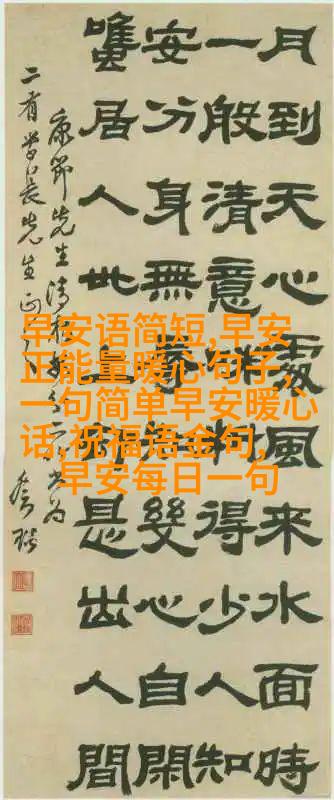 月到天心處風來水面時
一般清意味料得少人知
安分身無辱知幾心自閑
雖居人世上卻是出人間
康節先生清
二有學長先生正
早安语简短,早安
正能量暖心句子,
一句简单早安暖心
话,祝福语金句,
早安每日一句